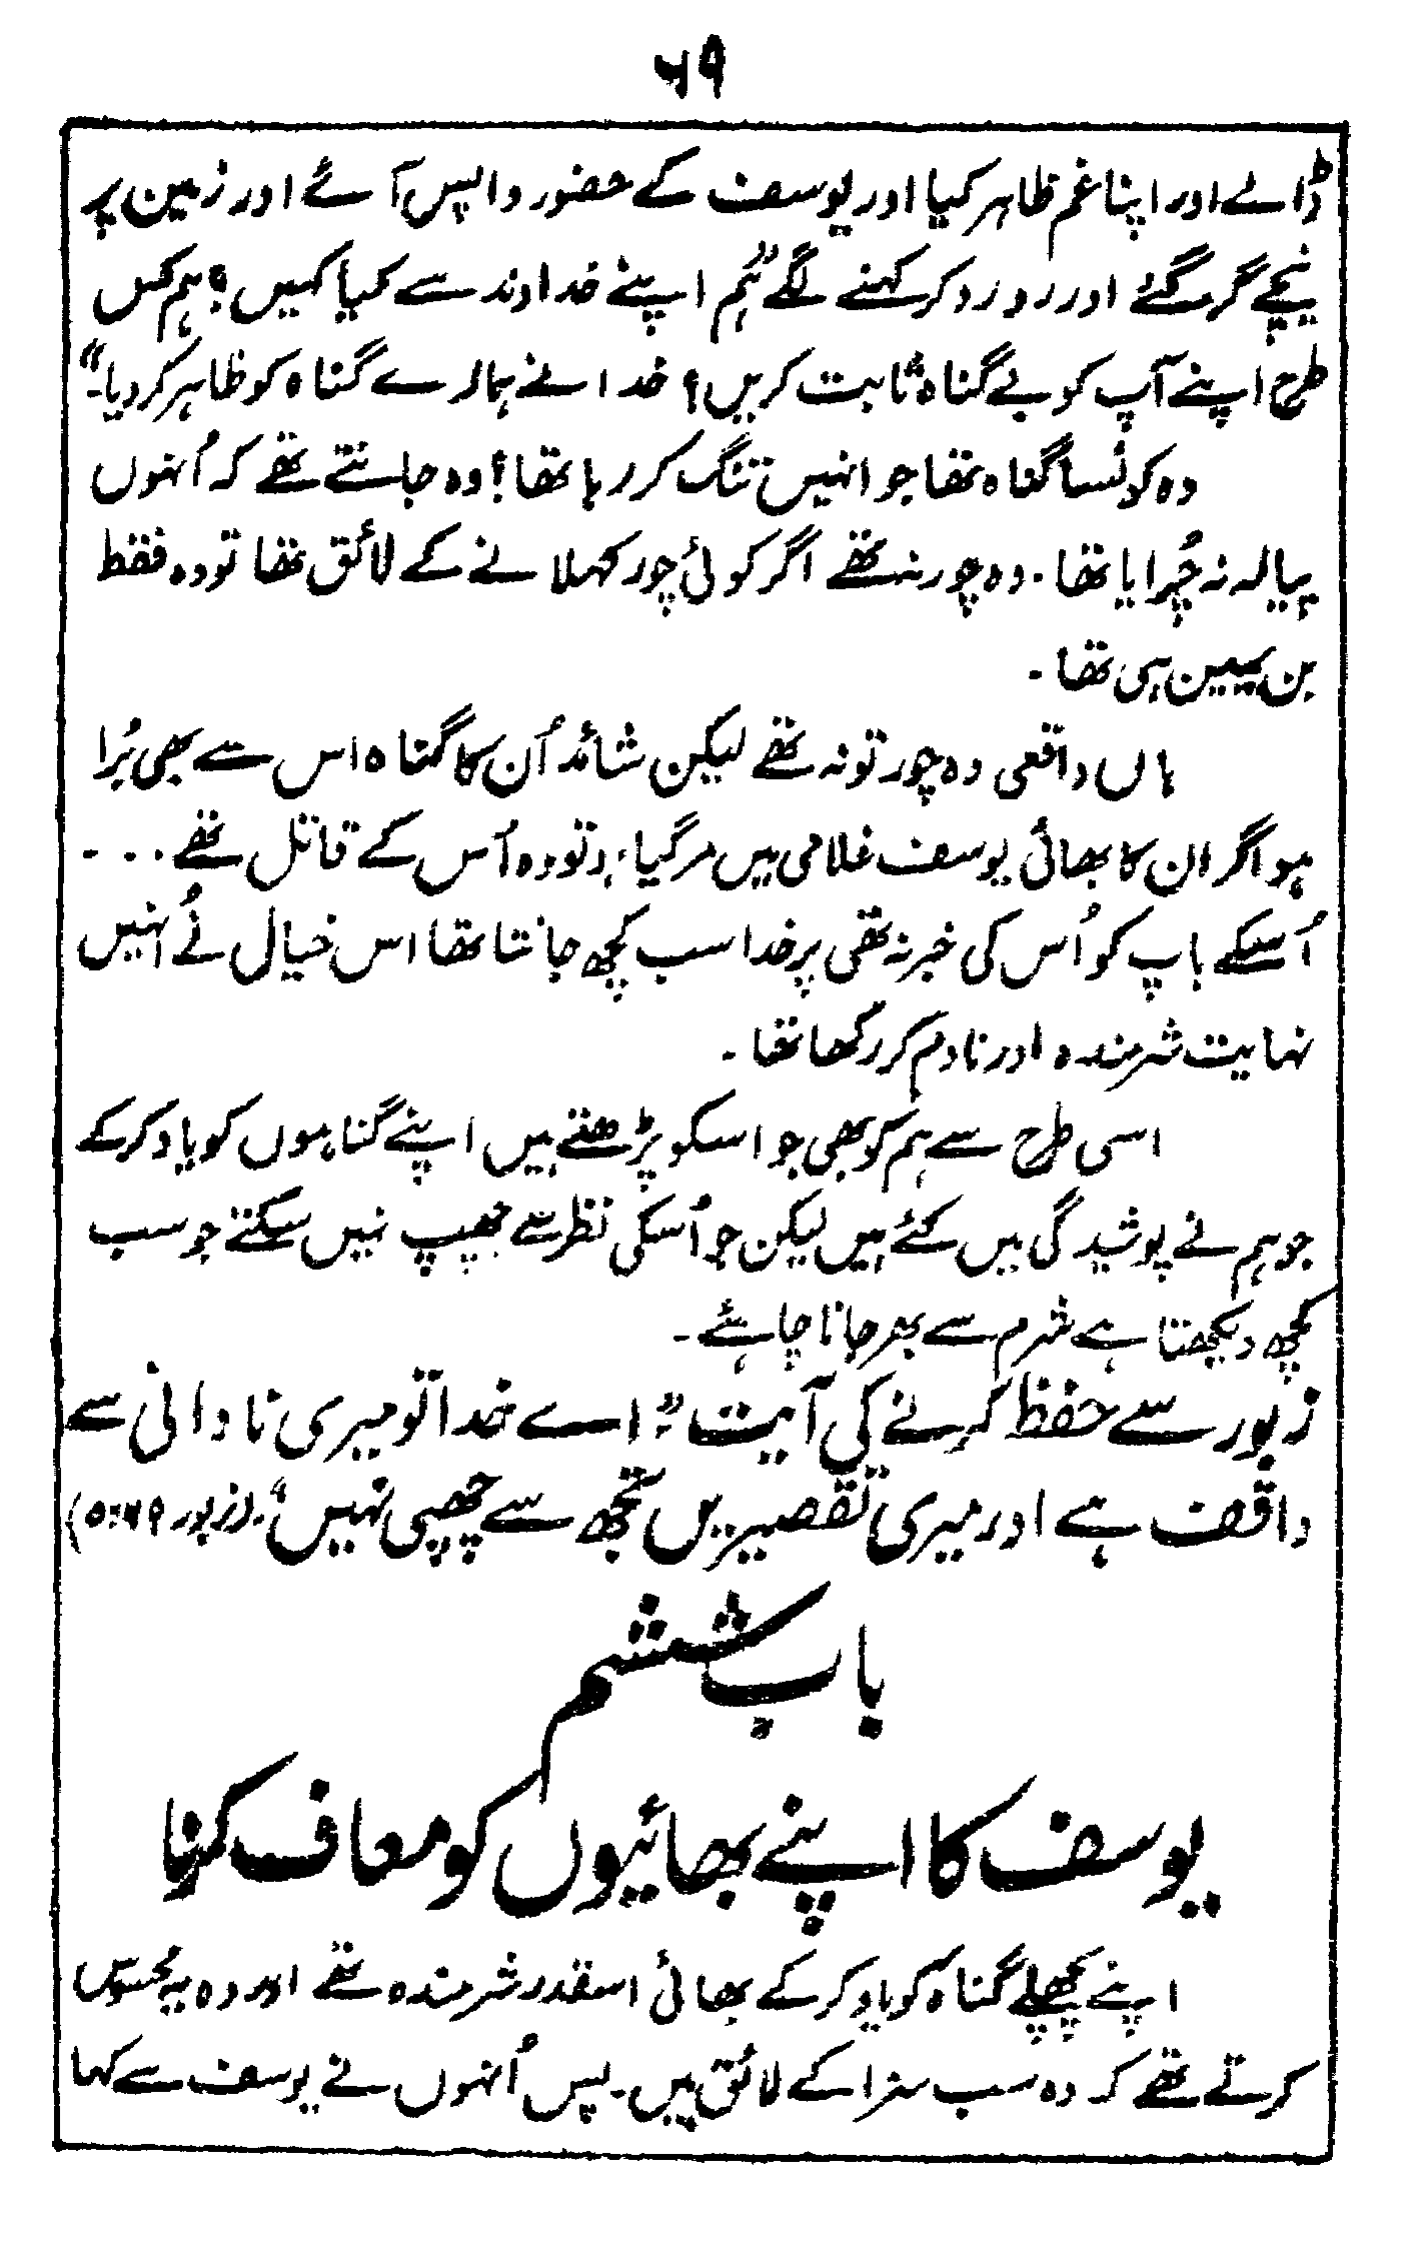 ۶۹
ڈالے اور اپنا غم ظاہر کیا اور یوسف کے حضور واپس آئے اور زمین پر
نیچے گر گئے اور رو رو کر کہنے لگے "ہم اپنے خداوند سے کیا کہیں؟ ہم کس
طرح اپنے آپ کو بے گناہ ثابت کریں؟ خدا نے ہمارے گناہ کو ظاہر کر دیا۔"
وہ کونسا گناہ تھا جو انہیں تنگ کر رہا تھا؟ وہ جانتے تھے کہ اُنہوں
پیالہ نہ چُرایا تھا۔ وہ چور نہ تھے اگر کوئی چور کہلانے کے لائق تھا تو وہ فقط
بن یمین ہی تھا۔
ہاں واقعی وہ چور تو نہ تھے لیکن شائد اُن کا گناہ اس سے بھی بُرا
ہو اگر ان کا بھائی یوسف غلامی میں مر گیا ہو تو وہ اُس کے قاتل تھے ۔ ۔ ۔ ۔
اُسکے باپ کو اُس کی خبر نہ تھی پر خدا سب کچھ جانتا تھا اس خیال نے اُنہیں
نہایت شرمندہ اور نادم کر رکھا تھا۔
اسی طرح سے ہم کو بھی جو اسکو پڑھتے ہیں اپنے گناہوں کو یاد کر کے
جو ہم نے پوشیدگی میں کئے ہیں لیکن جو اُسکی نظر سے چھپ نہیں سکتے جو سب
کچھ دیکھتا ہے شرم سے بھر جانا چاہئے۔
زبور سے حفظ کرنے کی آیت:" اے خدا تو میری نادانی سے
واقف ہے اور میری تقصیریں تجھ سے چھپی نہیں"۔ (زبور ۶۹:۵)
باب ششم
یوسف کا اپنے بھائیوں کو معاف کرنا
اپنے پچھلے گناہ کو یاد کر کے بھائی اسقدر شرمندہ تھے اور وہ یہ محسوس
کرتے تھے کہ وہ سب سزا کے لائق ہیں۔ پس اُنہوں نے یوسف سے کہا